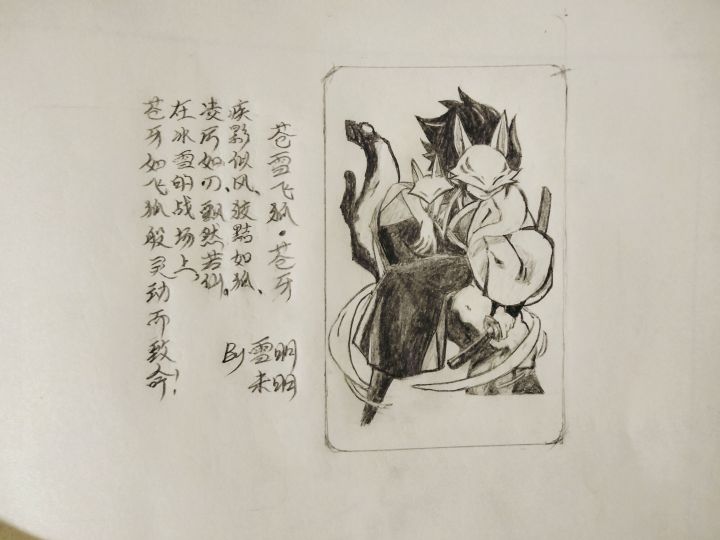 苍雪飞狐·苍牙
疾影似风、狡黠如狐、
凌厉如刀、飘然若仙。
在冰雪的战场上，
苍牙如飞狐般灵动而致命！
By 雪明
未明